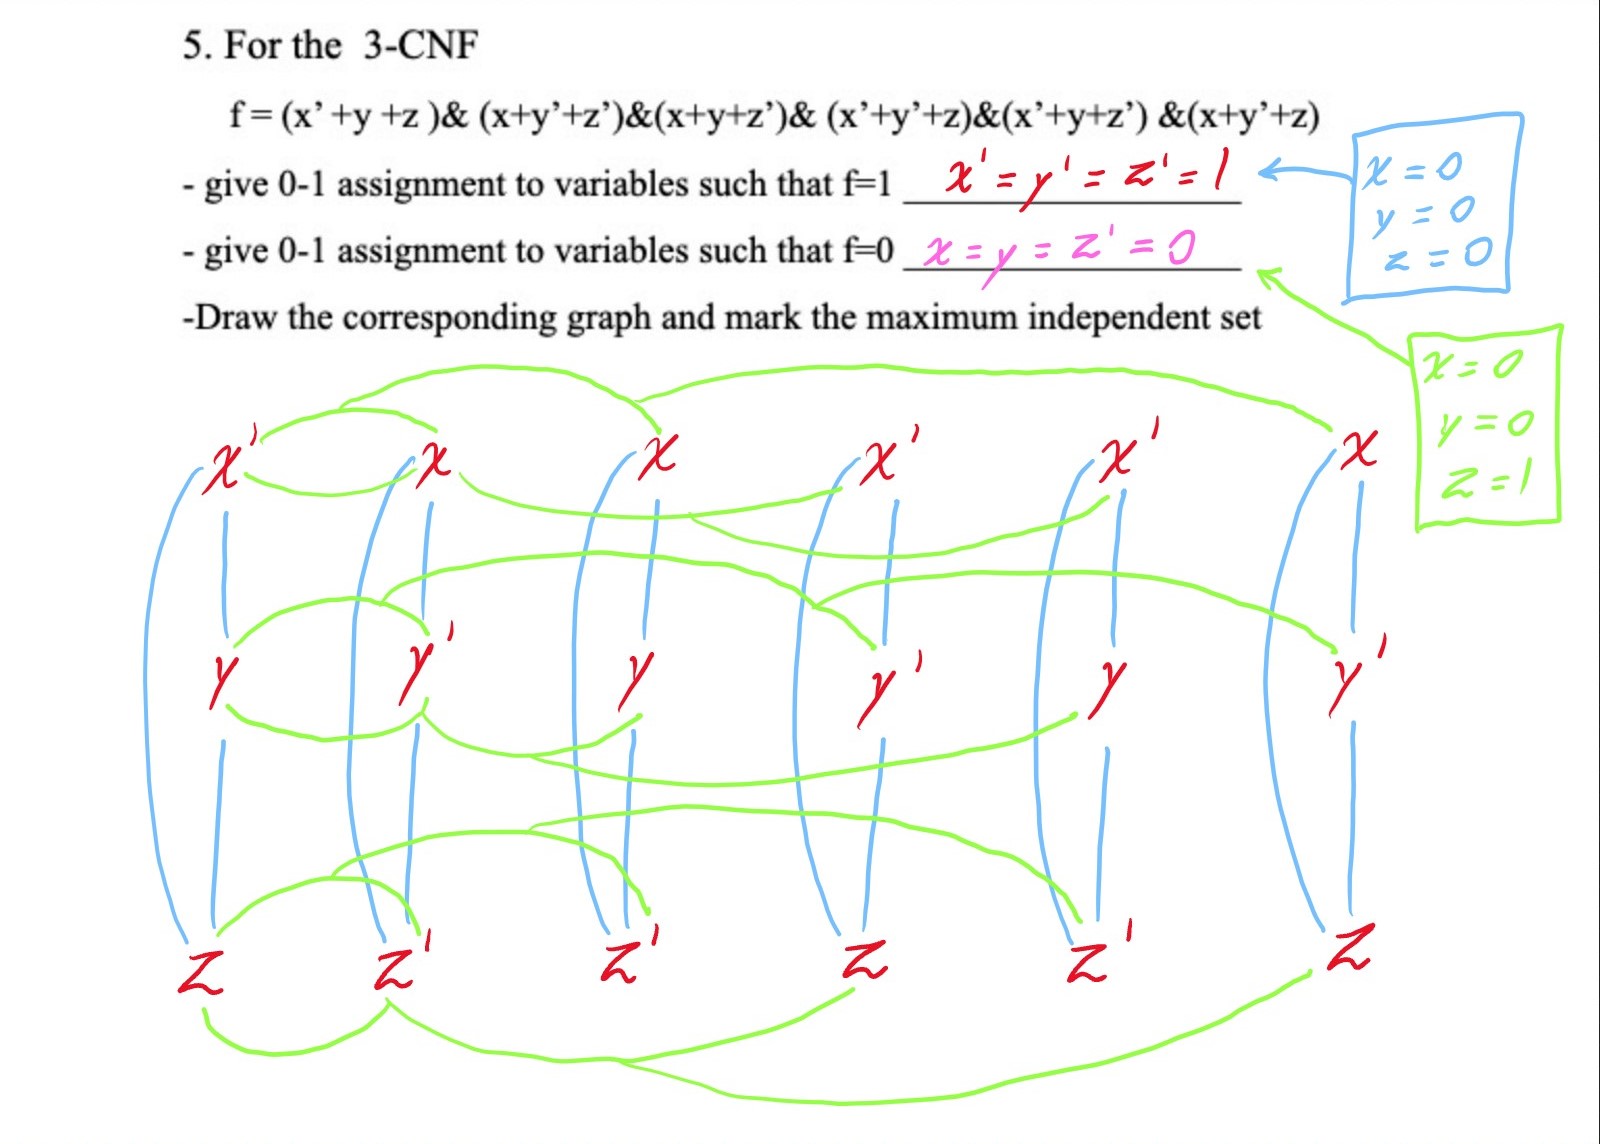 5. For the 3-CNF
f = (x’ +y +z )& (x+y’+z’)&(x+y+z’)& (x’+y’+z)&(x’+y+z’) &(x+y’+z)
- give 0-1 assignment to variables such that f=1 x' = y' = z' = 1
x = 0
y = 0
z = 0
- give 0-1 assignment to variables such that f=0 x = y = z' = 0
-Draw the corresponding graph and mark the maximum independent set
x = 0
y = 0
z = 1
x' x x x' x' x
y y' y y' y y'
z z' z' z z' z